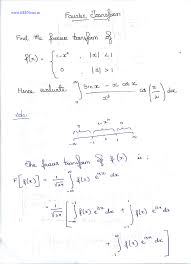 Fourier Transform
Find the fourier transform of
f(x) = { 1-x², |x| < 1
0, |x| > 1
Hence evaluate ∫ (sin x - x cos x)/x³ cos (x/2) dx
soln:
The fourier transform of f(x) is :
F[f(x)] = 1/√2π ∫ f(x) e^{isx} dx
= 1/√2π [ ∫ f(x) e^{isx} dx + ∫ f(x) e^{isx} dx
+ ∫ f(x) e^{isx} dx ]